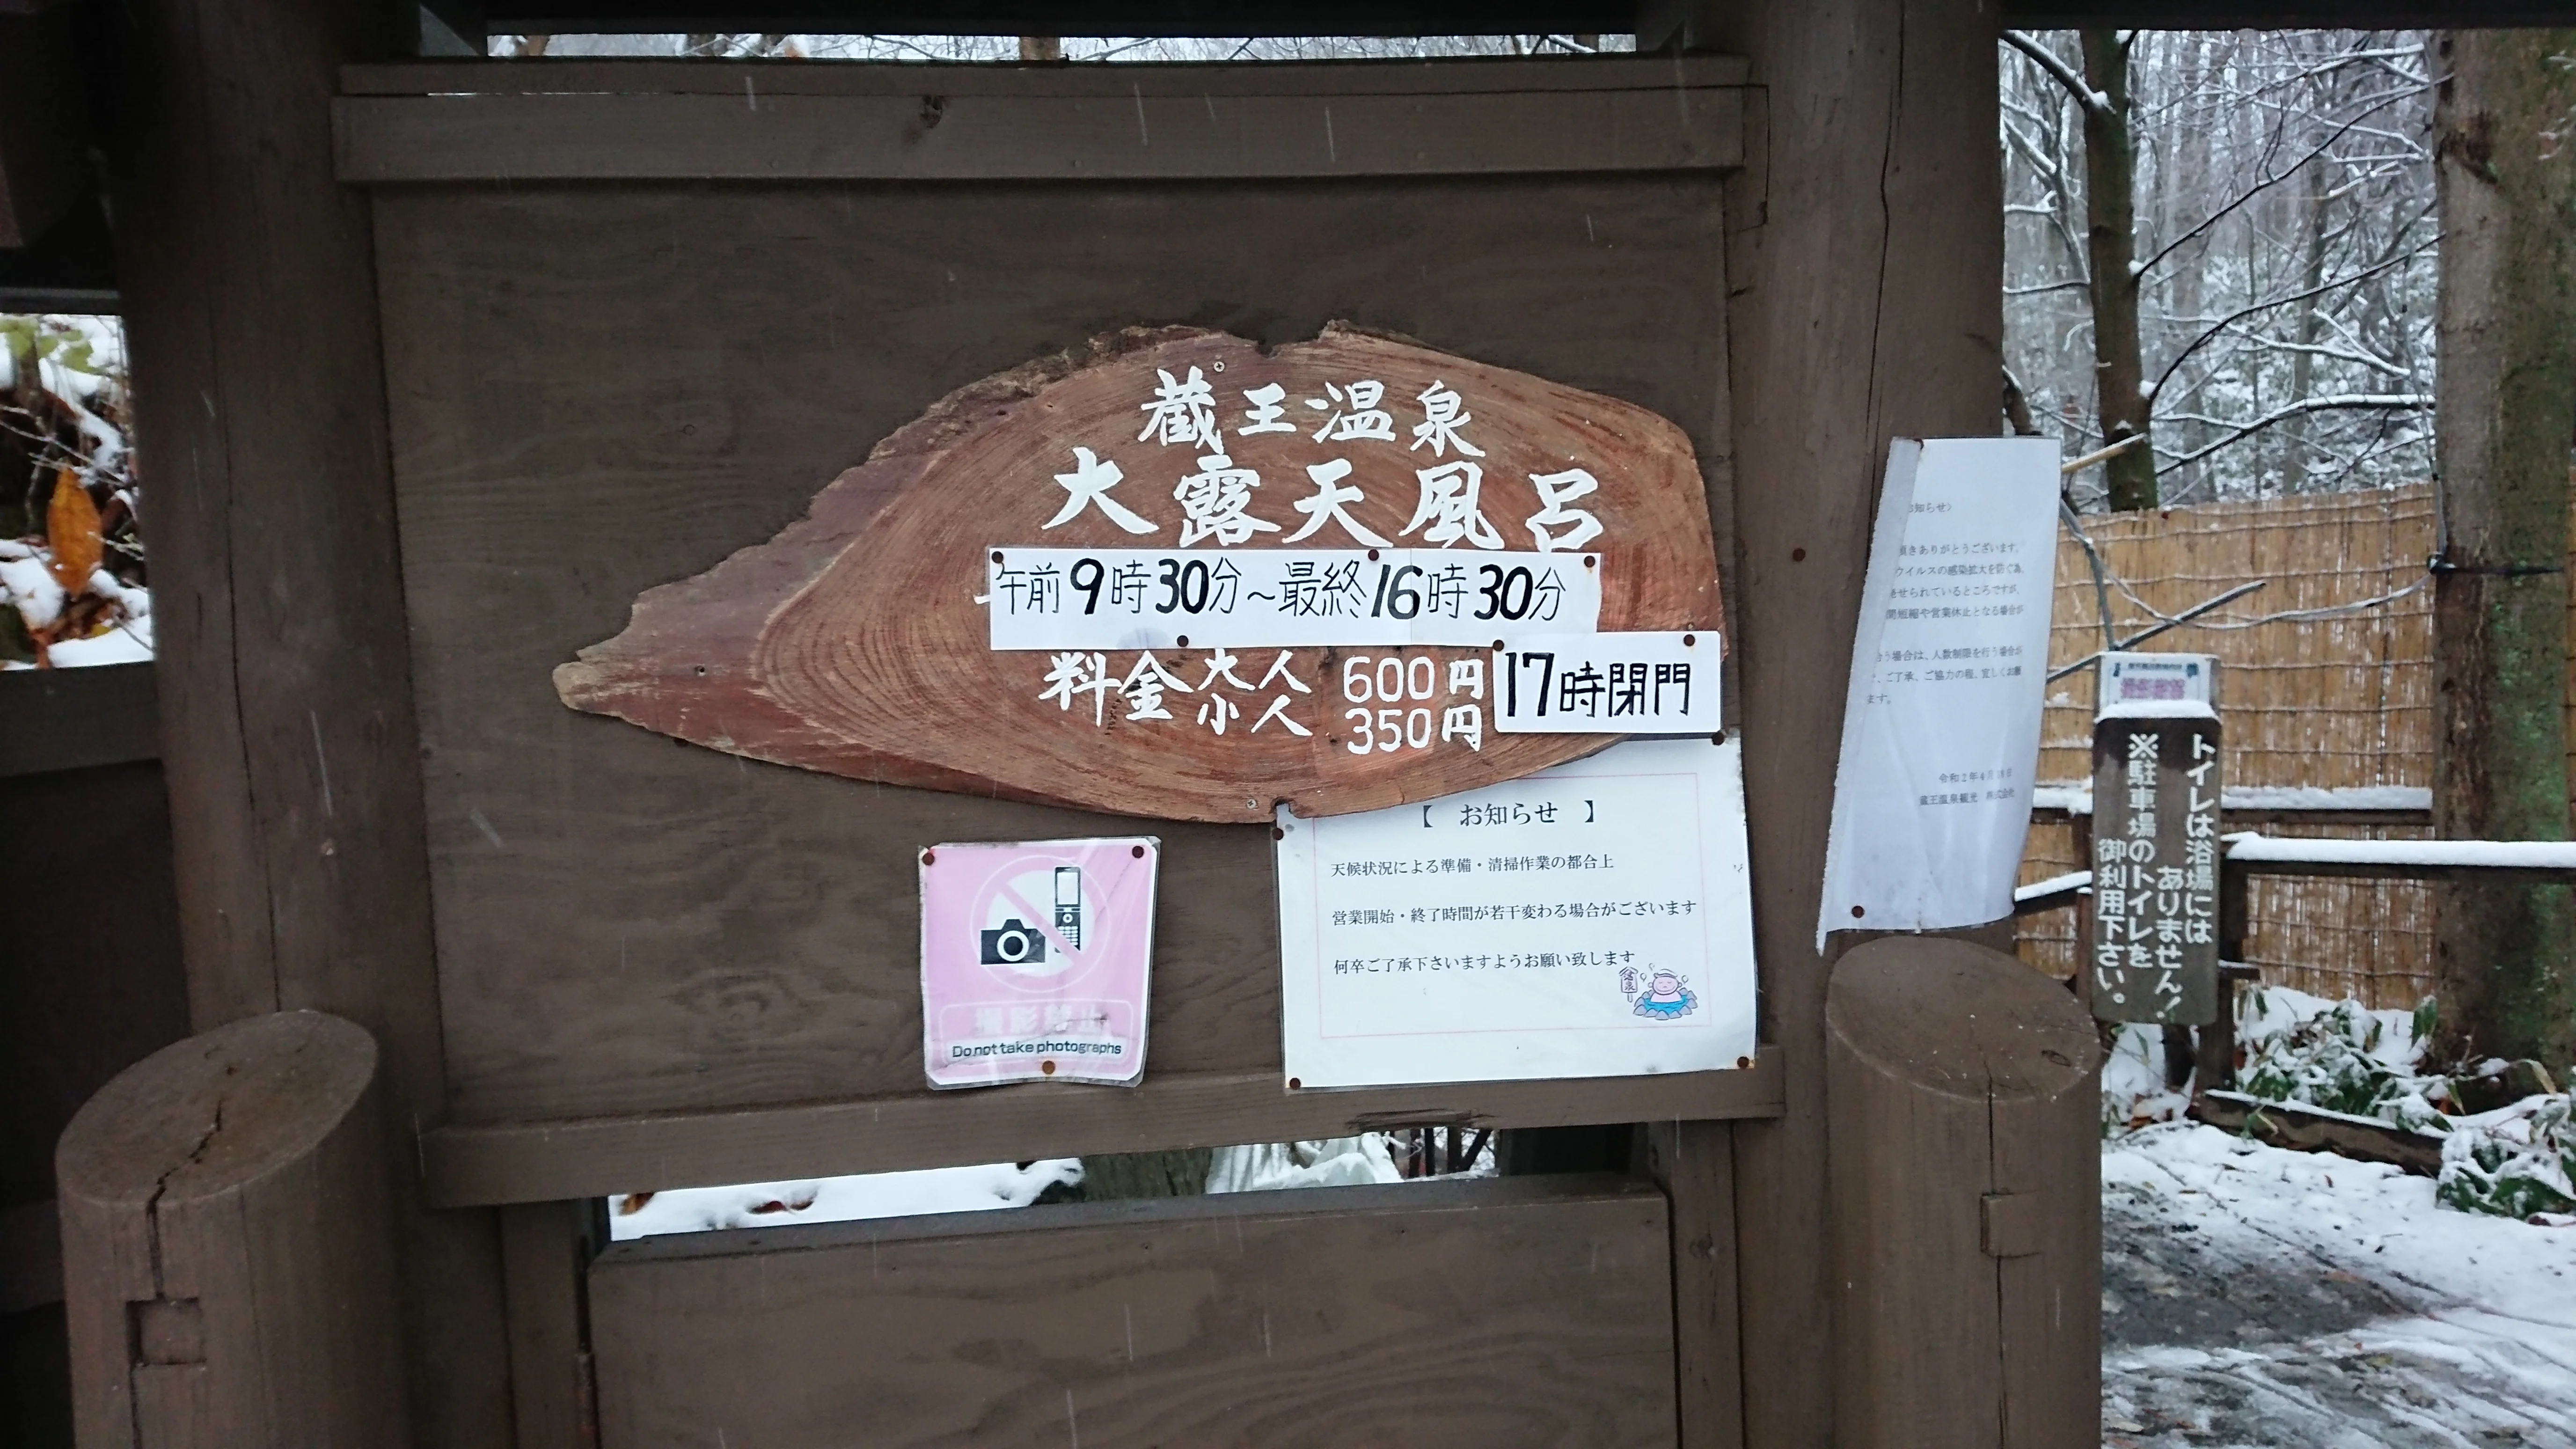 蔵王温泉
大露天風呂
午前9時30分～最終16時30分
料金 大人 600円
小人 350円
17時閉門
【 お知らせ 】
天候状況による準備・清掃作業の都合上
営業開始・終了時間が若干変わる場合がございます
何卒ご了承下さいますようお願い致します
温泉
撮影禁止
Do not take photographs
お知らせ〉
頂きありがとうございます。
ウイルスの感染拡大を防ぐ為、
させられているところですが、
間短縮や営業休止となる場合が
合う場合は、人数制限を行う場合が
ご了承、ご協力の程、宜しくお願
ます。
令和2年4月
蔵王温泉観光 株式会社
撮影禁止
トイレは浴場には
ありません！
※駐車場のトイレを
御利用下さい。